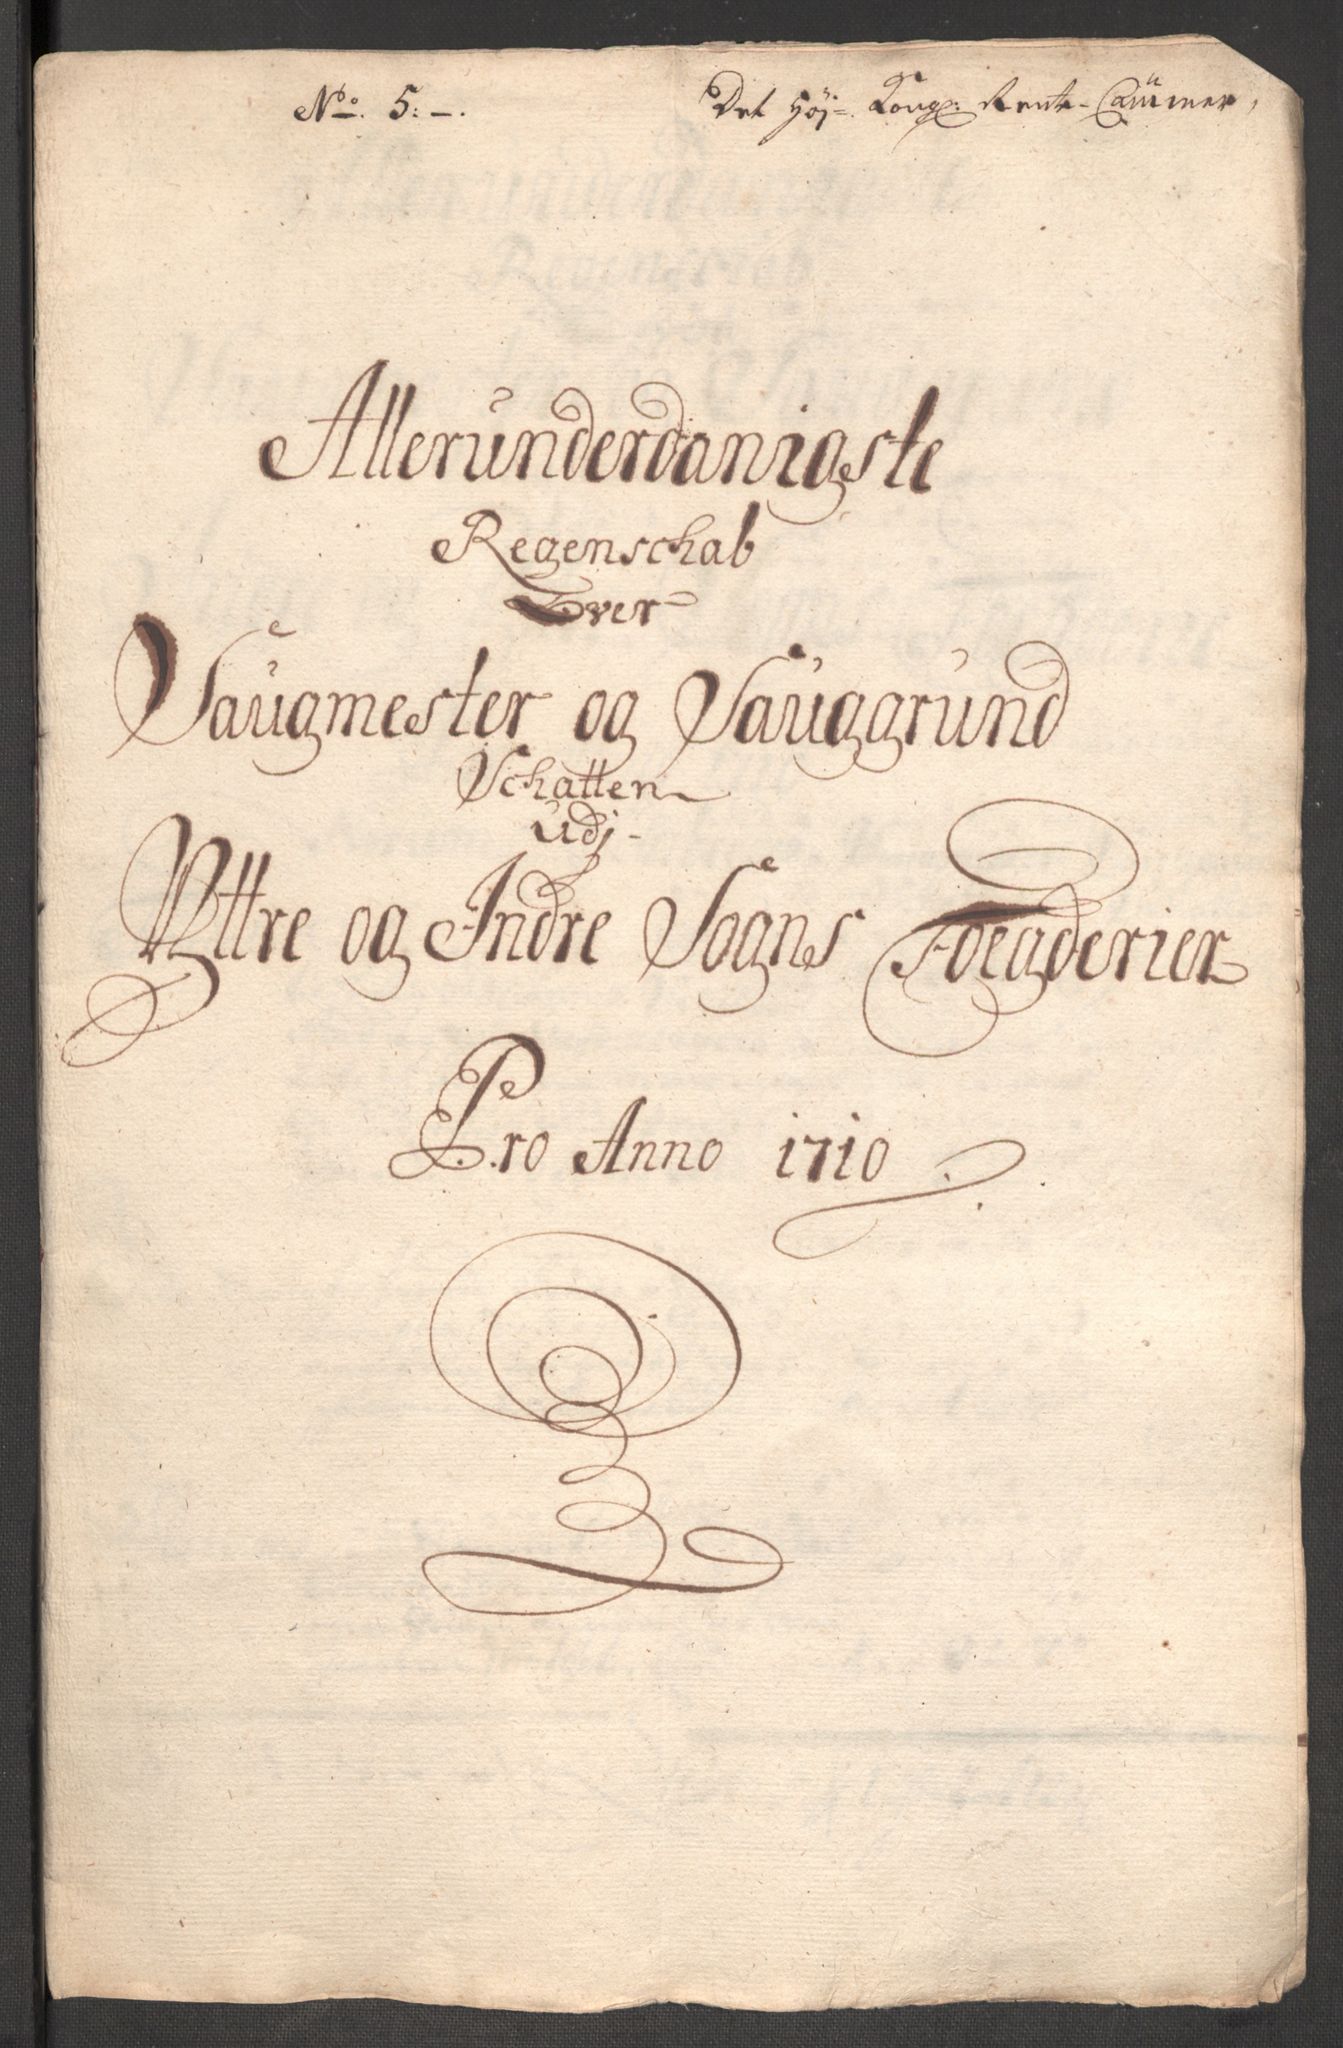 No. 5:-.
Det Höj-. Kongl: Rente-Cammer,
Allerunderdanigste
Regenschab
Over
Saugmester og Sauggrund
Schatten
udj
Yttre og Indre Sogns Foegderier
Pro Anno 1710